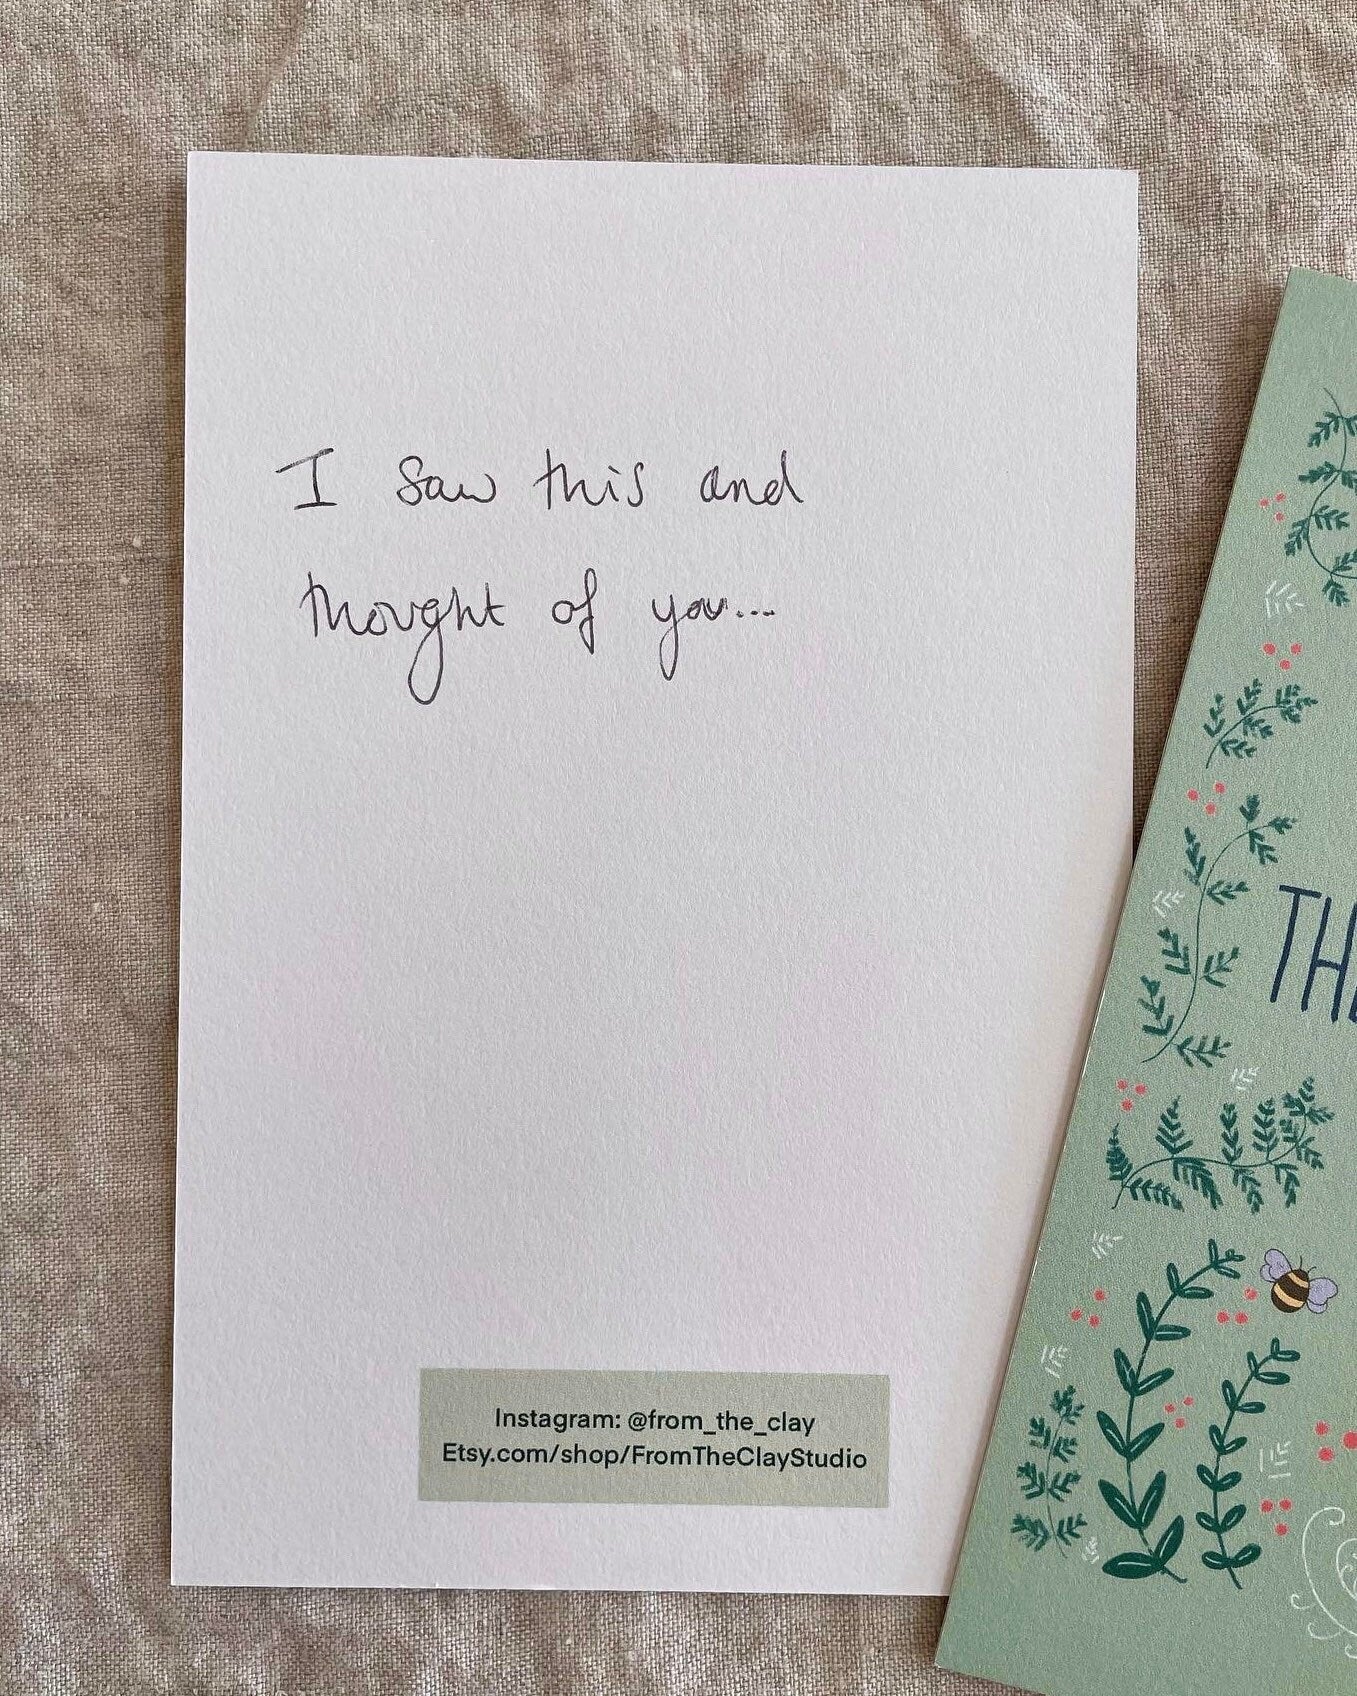 I saw this and
thought of you...
Instagram: @from_the_clay
Etsy.com/shop/FromTheClayStudio